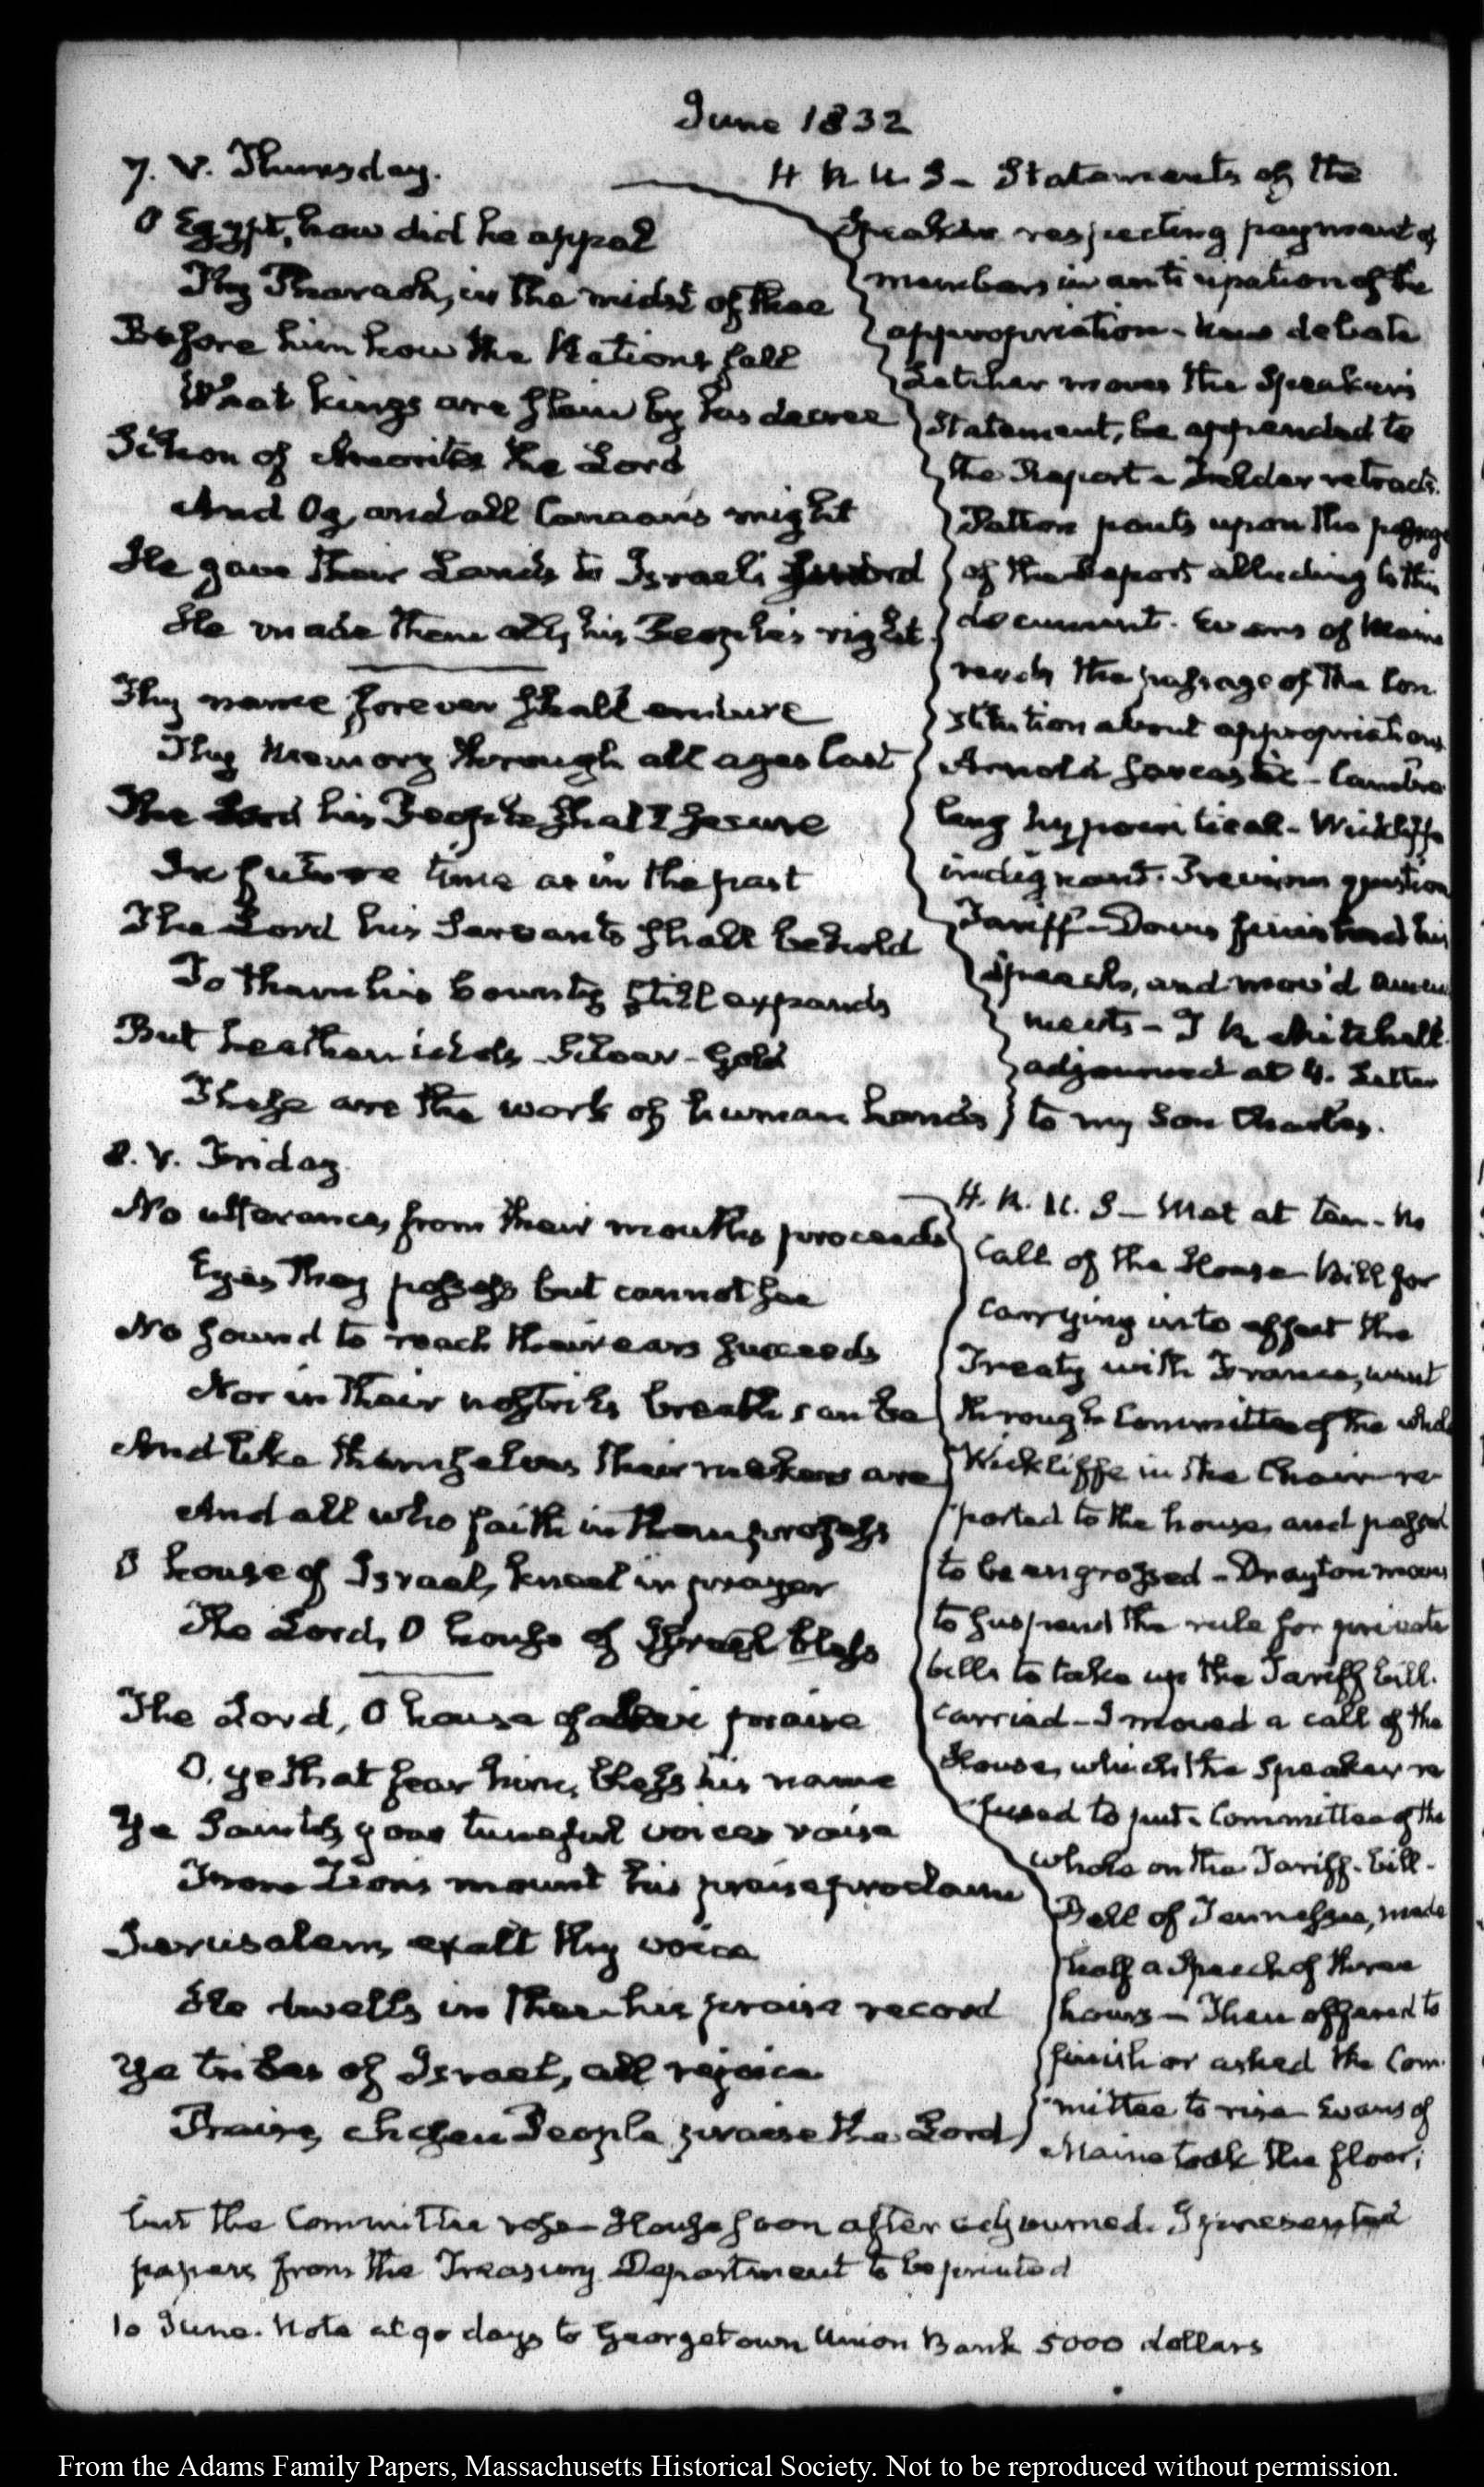 June 1832
7. V. Thursday.
O Egypt, how did he appal
Thy Pharaoh, in the midst of thee
Before him how the Nations fall
What kings are slain by his decree
Sihon of Amorites the Lord
And Og, and all Canaan's might
He gave their Lands to Israel's
He made them all, his People's right.
Thy name forever shall endure
Thy Memory through all ages last
The Lord his People shall secure
In future time as in the past
The Lord his Servants shall behold
To them his bounty still expands
But heathen idols - Silver - Gold
These are the work of human hands
H R U S - Statements of the
Speaker respecting payment of
members in anticipation of the
appropriation - New debate
Letcher moves the Speaker's
Statement, be appended to
the Report - Felder retracts.
Patton pouts upon the passage
of the Report alluding to this
document. Evans of Maine
reads the passage of the Con
stitution about appropriations
Arnold sarcastic - Cambre
leng hypocritical - Wickliffe
indignant. Previous question
Tariff - Davis finished his
Speech, and mov'd amend
ments - T R Mitchell
adjourned at 4. Letter
to my Son Charles.
8. V. Friday.
No utterance, from their mouths proceeds
Eyes they possess but cannot see
No sound to reach their ears succeeds
Nor in their nostrils breath can be
And like themselves their makers are
And all who faith in them profess
O house of Israel, kneel in prayer
The Lord, O house of Israel bless
The Lord, O house of Levi praise
O, ye that fear him, bless his name
Ye Saints, your tuneful voices raise
From Zion's mount his praise proclaim
Jerusalem, exalt thy voice
He dwells in thee - his praise record
Ye tribes of Israel, all rejoice
Praise, chosen People, praise the Lord
H. R. U. S - Met at ten - No
Call of the House - Bill for
carrying into effect the
Treaty with France, went
through Committee of the whole
Wickliffe in the Chair - re
ported to the house, and passed
to be engrossed - Drayton moves
to suspend the rule for private
bills to take up the Tariff bill.
carried - I moved a call of the
House, which the Speaker re
fused to put. Committee of the
whole on the Tariff - bill -
Bell of Tennessee, made
half a Speech of three
hours - Then offered to
finish or asked the Com
mittee to rise - Evans of
Maine took the floor;
but the Committee rose - House soon after adjourned. I presented
papers from the Treasury Department to be printed
10 June. Note at 90 days to Georgetown Union Bank 5000 dollars
From the Adams Family Papers, Massachusetts Historical Society. Not to be reproduced without permission.